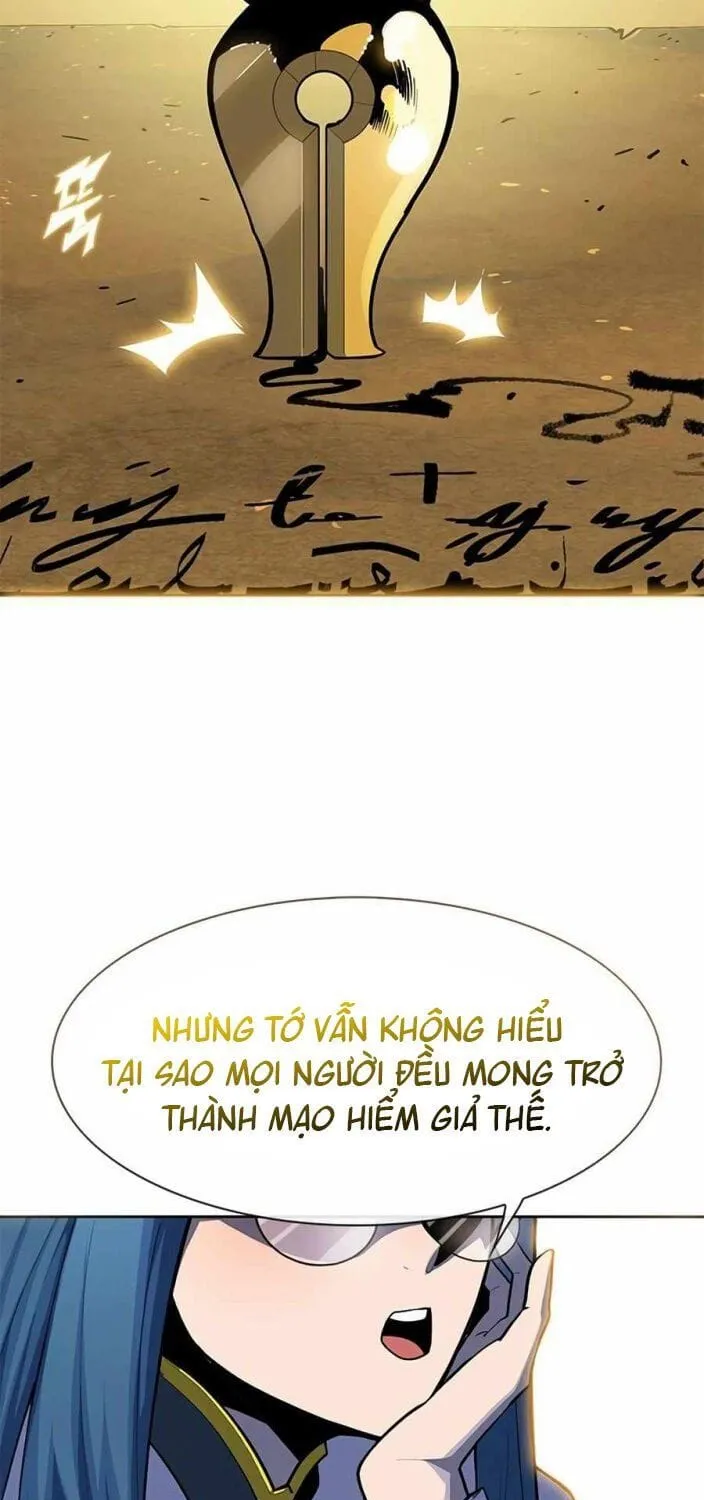 뚝
NHƯNG TỚ VẪN KHÔNG HIỂU
TẠI SAO MỌI NGƯỜI ĐỀU MONG TRỞ
THÀNH MẠO HIỂM GIẢ THẾ.